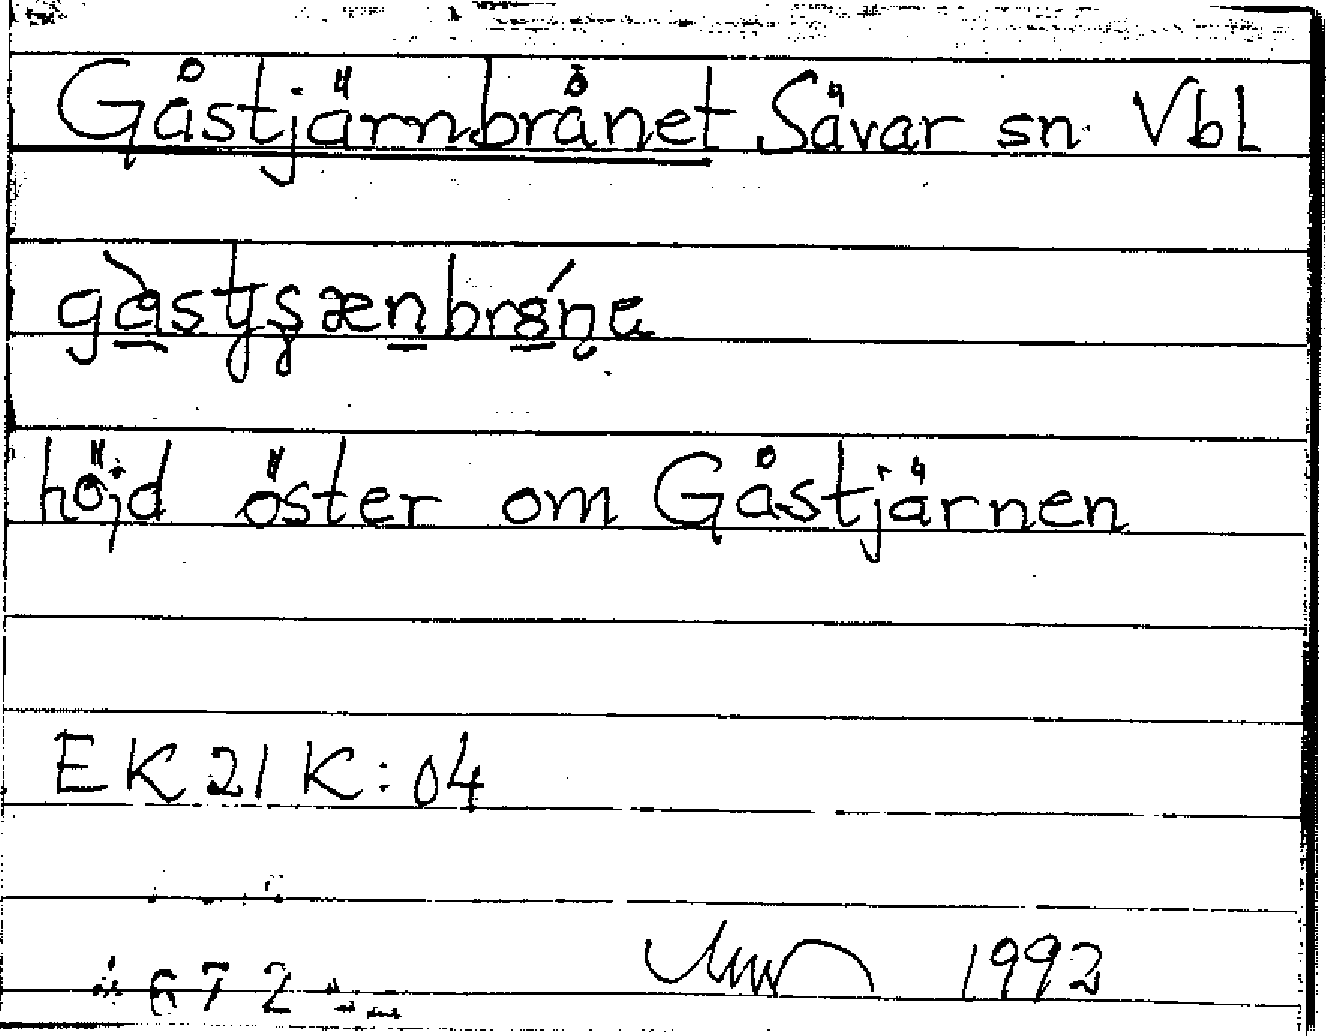 Gåstjärnbrånet Sävar sn Vbl
höjd öster om Gåstjärnen
EK 21 K: 04
672
1992